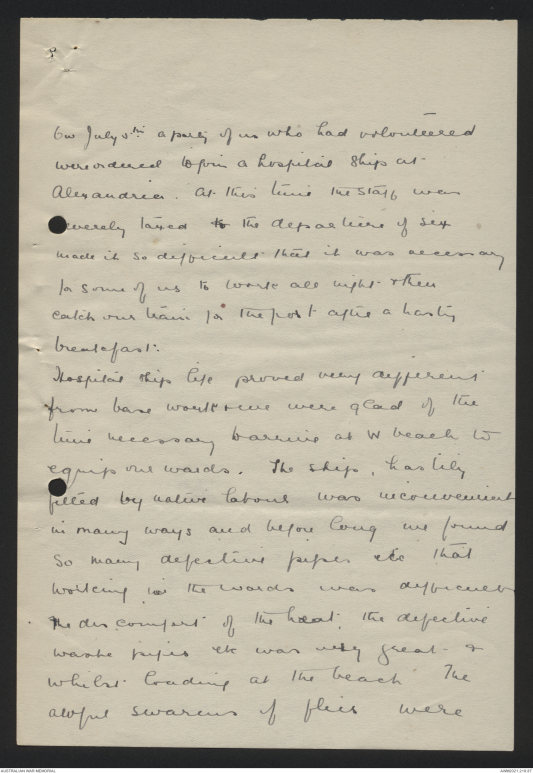 On July 5th a party of us who had volunteered
were ordered to join a hospital ship at
Alexandria. At this time the staff was
severely taxed & the departure of six
made it so difficult that it was necessary
for some of us to work all night & then
catch our train for the port after a hasty
breakfast.
Hospital ship life proved very different
from base work & we were glad of the
time necessary to arrive at W beach to
equip our wards. The ship, hastily
fitted by native labour was inconvenient
in many ways and before long we found
so many defective pipes etc that
working in the wards was difficult
The discomfort of the heat, the defective
waste pipes etc was very great &
whilst loading at the beach The
awful swarms of flies were
AUSTRALIAN WAR MEMORIAL